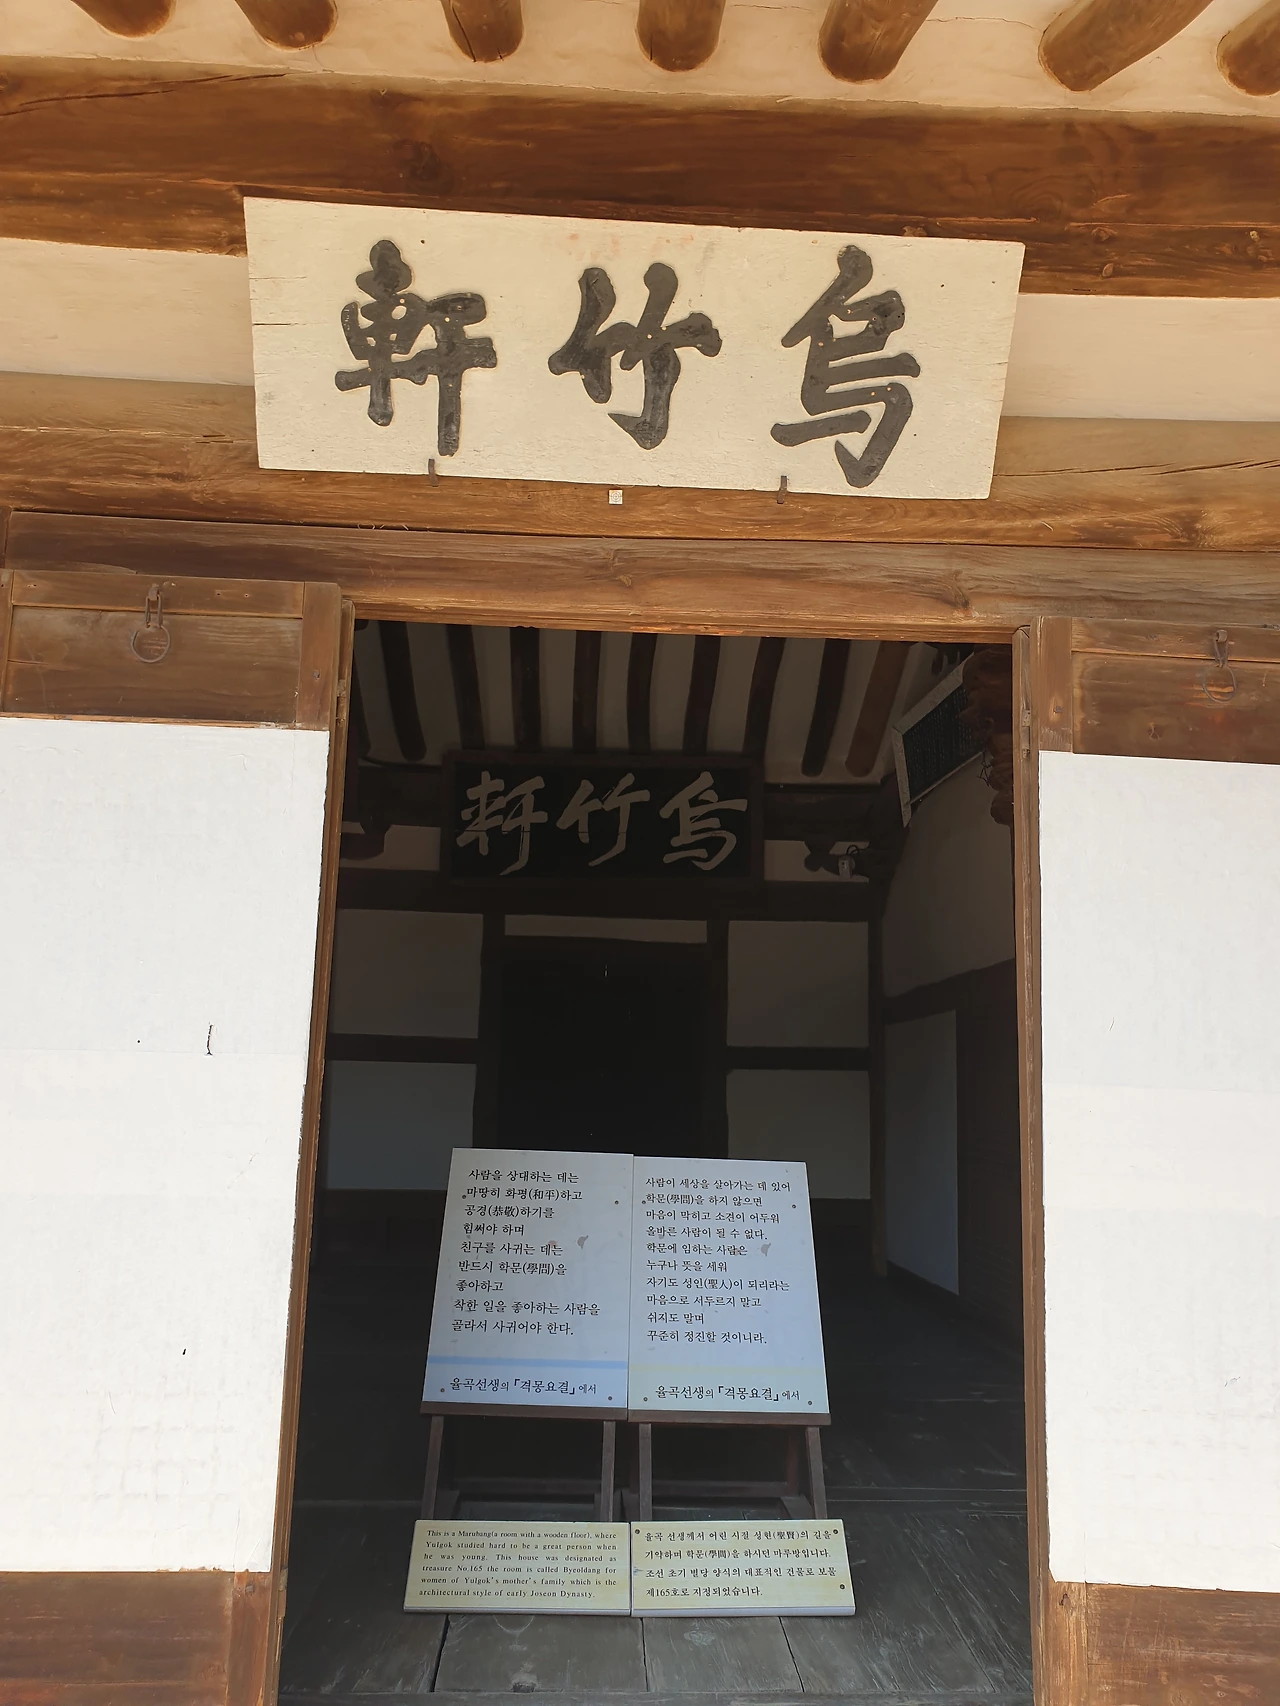 軒竹烏
軒竹烏
사람을 상대하는 데는
마땅히 화평(和平)하고
공경(恭敬)하기를
힘써야 하며
친구를 사귀는 데는
반드시 학문(學問)을
좋아하고
착한 일을 좋아하는 사람을
골라서 사귀어야 한다.
율곡선생의 『격몽요결』에서
사람이 세상을 살아가는 데 있어
학문(學問)을 하지 않으면
마음이 막히고 소견이 어두워
올바른 사람이 될 수 없다.
학문에 임하는 사람은
누구나 뜻을 세워
자기도 성인(聖人)이 되리라는
마음으로 서두르지 말고
쉬지도 말며
꾸준히 정진할 것이니라.
율곡선생의 『격몽요결』에서
This is a Marubang(a room with a wooden floor), where
Yulgok studied hard to be a great person when
he was young. This house was designated as
treasure No.165 the room is called Byeoldang for
women of Yulgok's mother's family which is the
architectural style of early Joseon Dynasty.
율곡 선생께서 어린 시절 성현(聖賢)의 길을
기약하며 학문(學問)을 하시던 마루방입니다.
조선 초기 별당 양식의 대표적인 건물로 보물
제165호로 지정되었습니다.